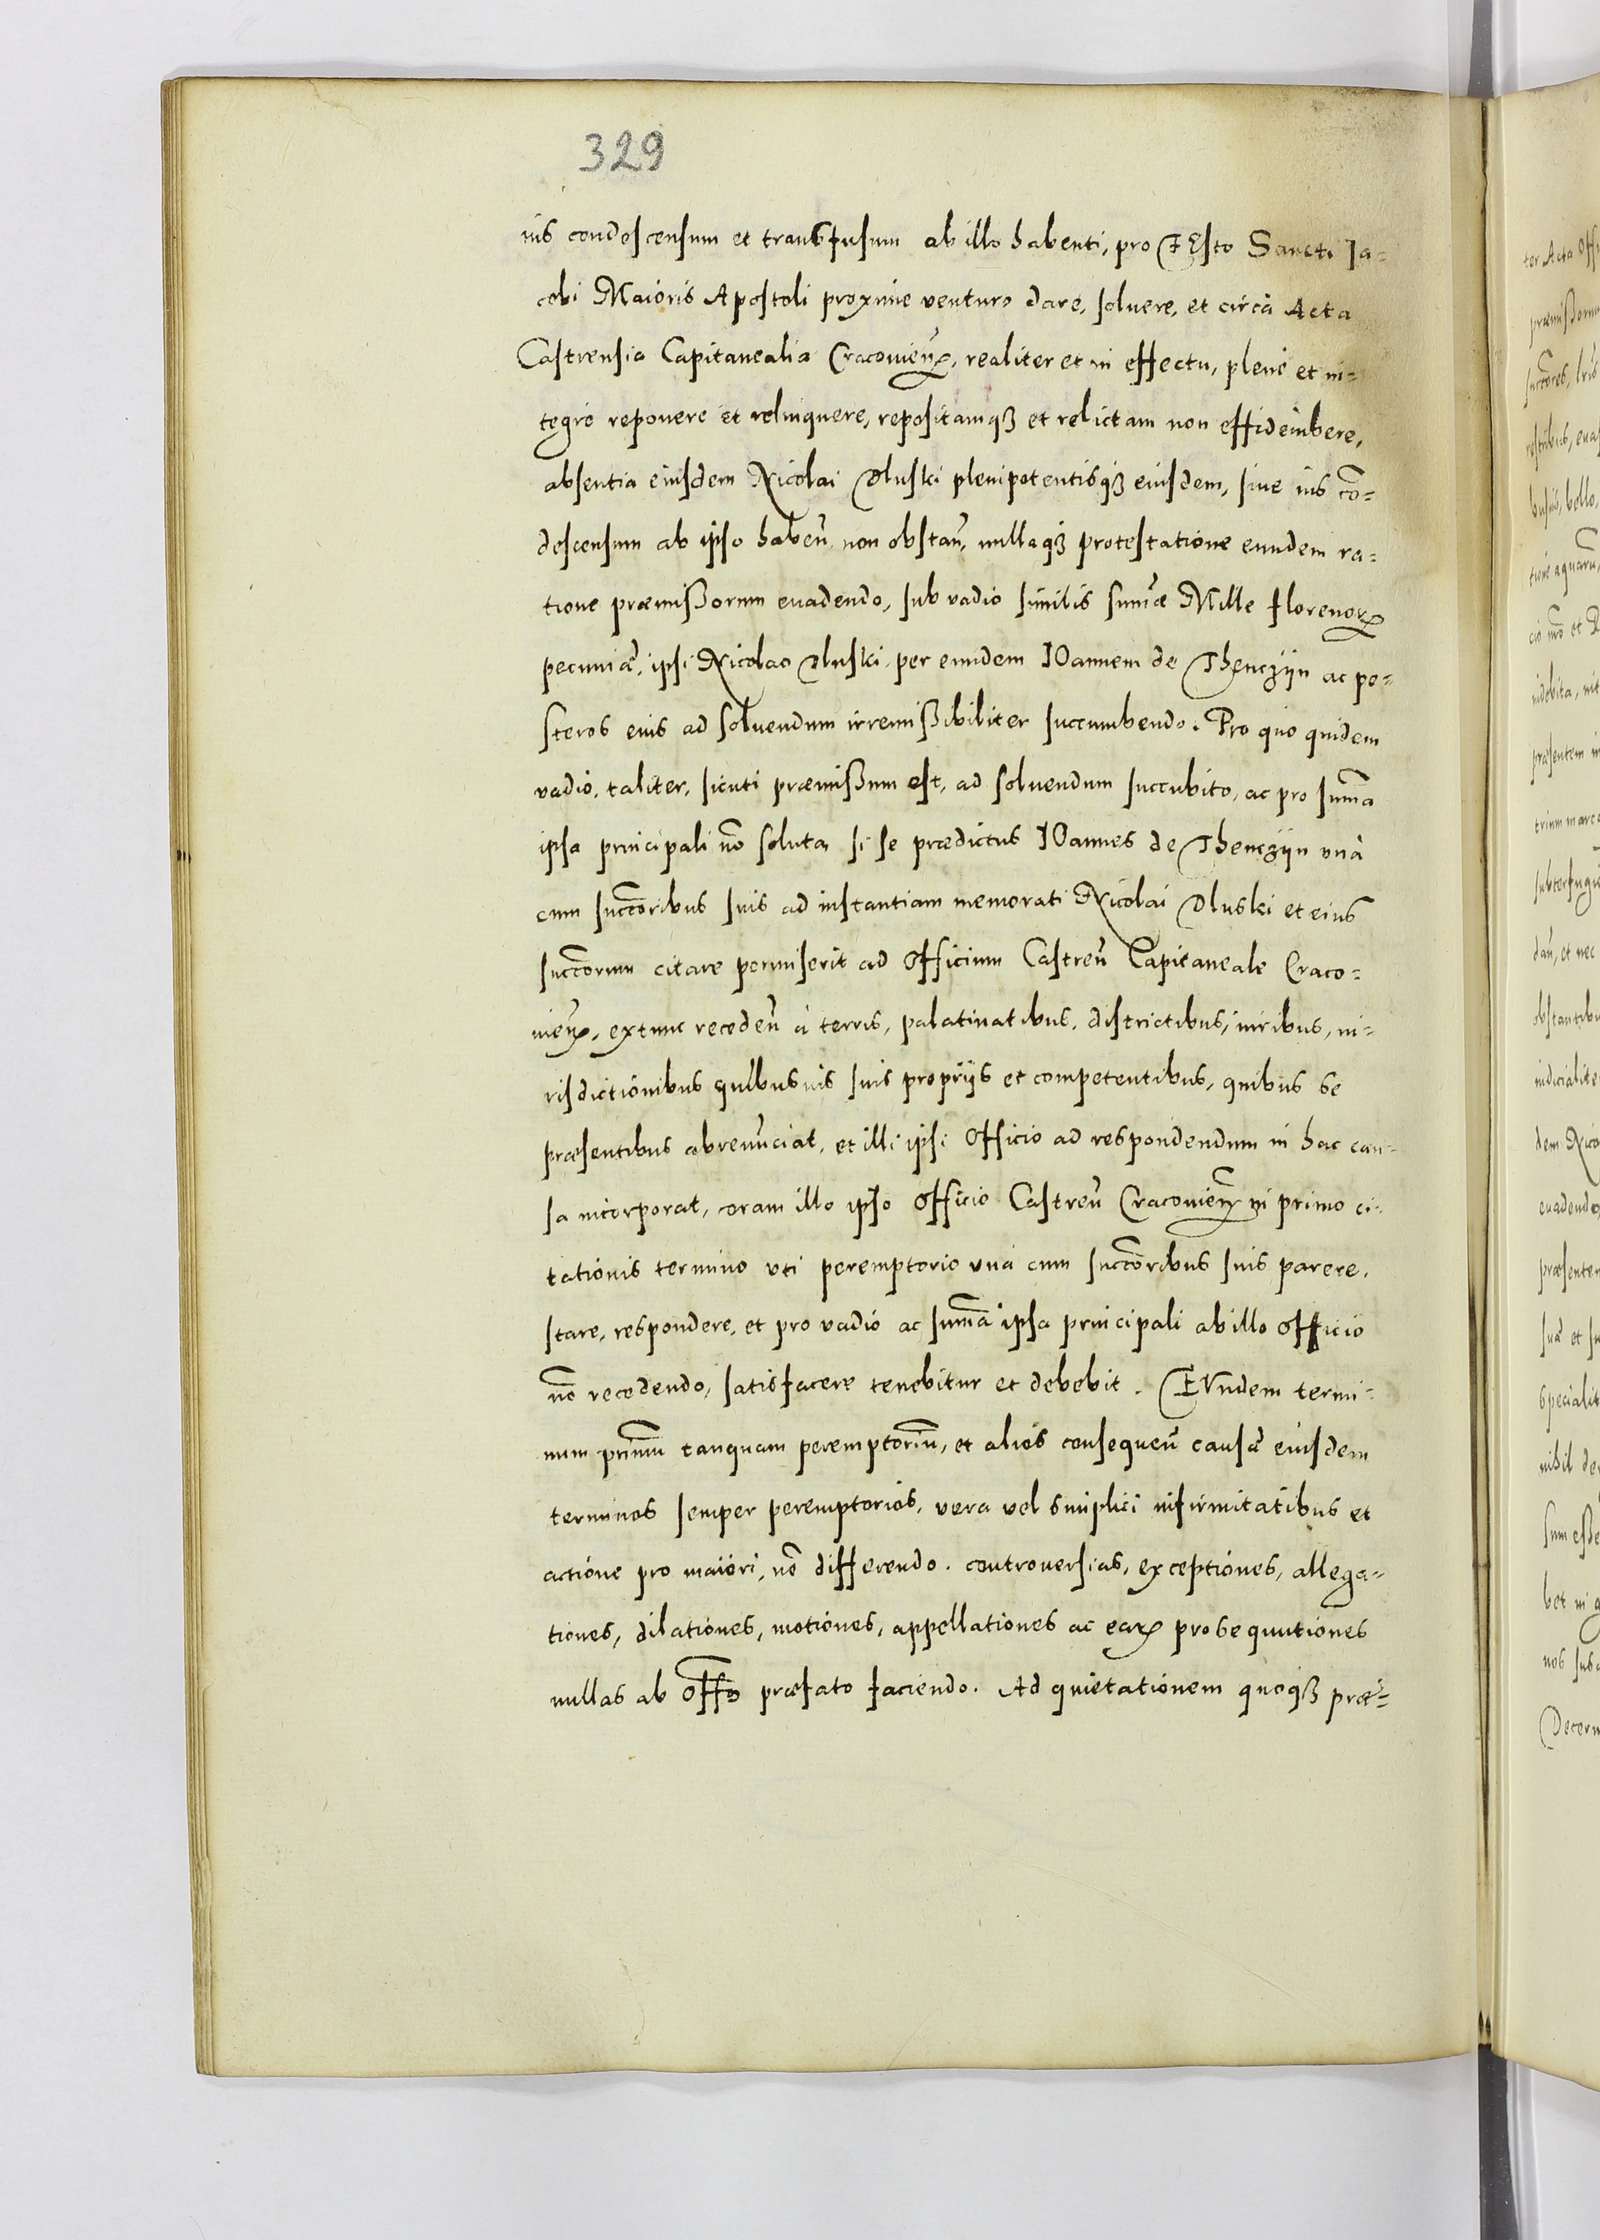 329
ius condescensum et transfusum ab illo habenti, pro FEsto Sancti Ia-
cobi Maioris Apostoli proxime venturo dare, soluere, et circa Acta
Castrensia Capitanealia Cracouien̄, realiter et in effectu, plene et in-
tegre reponere et relinquere, repositamqꝫ et relictam non
absentia eiusdem Nicolai Dluski plenipotentisqꝫ eiusdem, siue ius cō-
descensum ab ipso haben̄ non obstan̄, nullaqꝫ protestatione eundem ra-
tione præmißorum euadendo, sub vadio similis sum̄æ Mille florenoꝝ
pecuniæ, ipsi Nicolao Dluski per eundem IOannem de Thenczijn ac po-
steros eius ad soluendum irremißibiliter succumbendo. Pro quo quidem
vadio, taliter, sicuti præmißum est, ad soluendum succubito, ac pro sum̄a
ipsa principali nō soluta si se prædictus IOannes de Thenczijn vnà
cum succōribus suis ad instantiam memorati Nicolai Dluski et eius
succōrum citare permiserit ad Officium Castren̄ Capitaneale Craco-
uien̄, extunc receden̄ à terris, palatinatibus, districtibus, iuribus, iu-
risdictionibus quibusuis suis proprijs et competentibus, quibus se
præsentibus abrenūciat, et illi ipsi Officio ad respondendum in hac cau-
sa incorporat, coram illo ipso Officio Castren̄ Cracouien̄ in primo ci-
tationis termino vti peremptorio vnà cum succōribus suis parere,
stare, respondere, et pro vadio ac sum̄a ipsa principali ab illo officio
nō recedendo, satisfacere tenebitur et debebit. EVndem termi-
num primū tanquam peremptoriū, et alios consequen̄ causæ eiusdem
terminos semper peremptorios, vera vel simplici infirmitatibus et
actione pro maiori, nō differendo. controuersias, exceptiones, allega-
tiones, dilationes, motiones, appellationes ac eaꝝ prosequutiones
nullas ab offō præfato faciendo. Ad quietationem quoqꝫ præ-